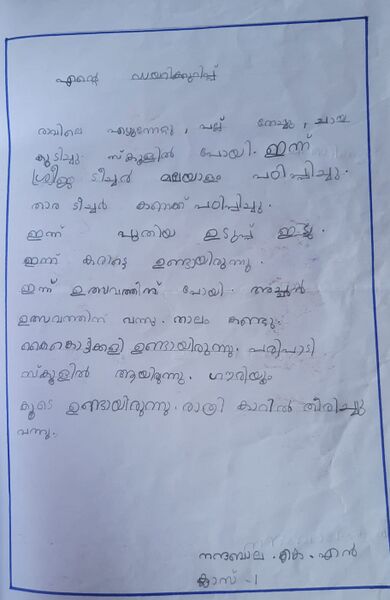 എന്റെ ഡയറിക്കുറിപ്പ്
രാവിലെ എഴുന്നേറ്റു, പല്ല് തേച്ചു, ചായ
കുടിച്ചു. സ്കൂളിൽ പോയി. ഇന്ന്
ടീച്ചർ മലയാളം പഠിപ്പിച്ചു.
താര ടീച്ചർ കണക്ക് പഠിപ്പിച്ചു.
ഇന്ന് പുതിയ ഉടുപ്പ് ഇട്ടു.
ഇന്ന് കരാട്ടെ ഉണ്ടായിരുന്നു.
ഇന്ന് ഉത്സവത്തിന് പോയി. അച്ഛൻ
ഉത്സവത്തിന് വന്നു. താലം കണ്ടു.
കൈകൊട്ടിക്കളി ഉണ്ടായിരുന്നു. പരിപാടി
സ്കൂളിൽ ആയിരുന്നു. ഗൗരിയും
കൂടെ ഉണ്ടായിരുന്നു. രാത്രി കാറിൽ തിരിച്ചു
വന്നു.
നന്ദബാല. കെ. എൻ
ക്ലാസ് -1